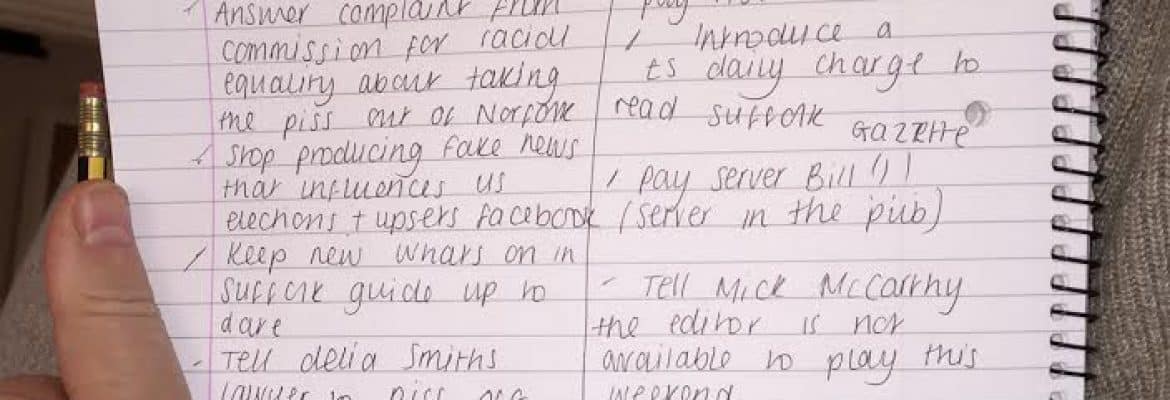 Answer complaint from
commission for racial
equality about taking
the piss out of Norfolk
stop producing fake news
that influences us
elections + upsets facebook
keep new whats on in
suffolk guide up to
date
Tell delia Smiths
lawyer to piss off
pay
Introduce a
£5 daily charge to
read suffolk GAZZETTE
pay server Bill !!!
(server in the pub)
Tell Mick McCarthy
the editor is not
available to play this
weekend